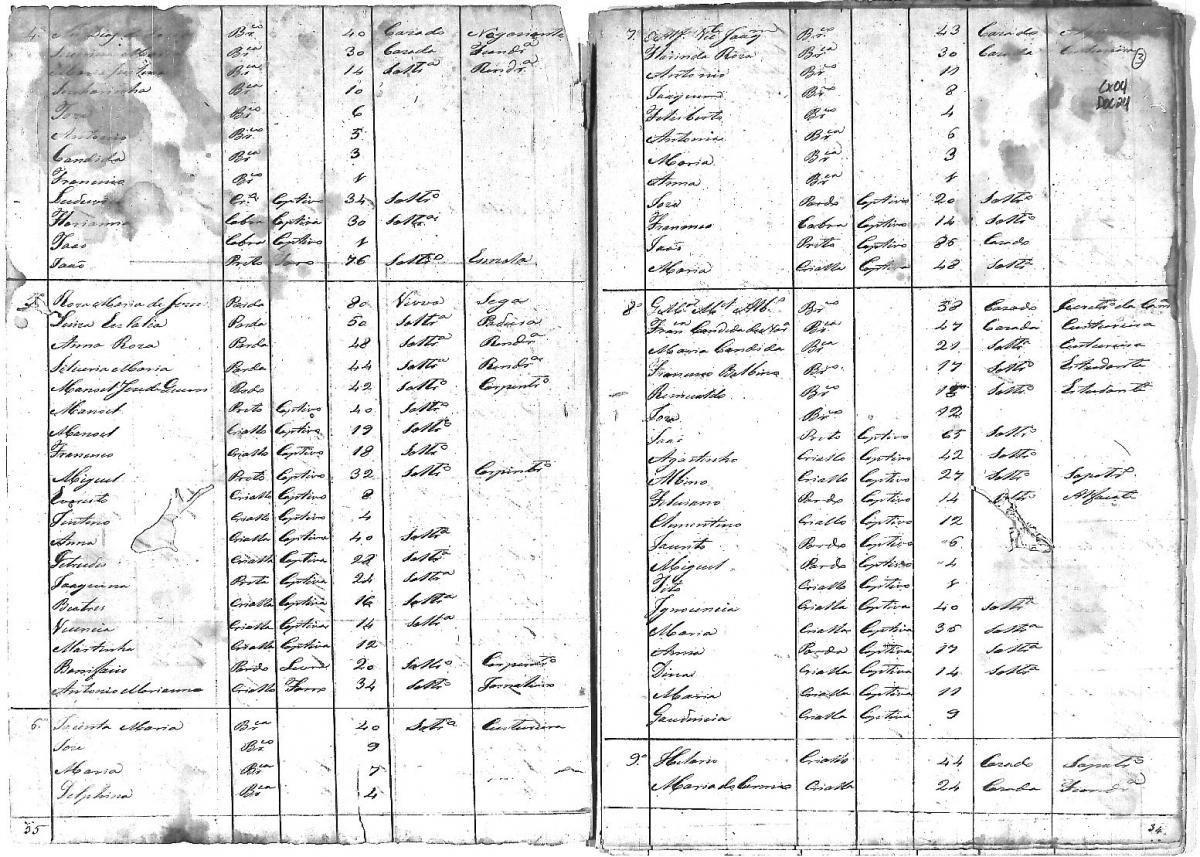 4. Br.co 40 Casado Negociante
Br.ca 30 Casada Fiandr.a
Br.ca 14 Soltr.a Rendr.a
Senhorinha Br.ca 10
Joze Br.co 6
Antonio Br.co 5
Candida Br.ca 3
Francisco Br.co 1
Cr.a Captiva 34 Soltr.a
Florianna Cabra Captiva 30 Soltr.a
João Cabra Captivo 1
João Preto Forro 76 Soltr.o Esmola
5. Roza Maria de Jesus Parda 80 Viuva Sega
Luiza Eulalia Parda 50 Soltr.a Padeira
Anna Roza Parda 48 Soltr.a Rendr.a
Silveria Maria Parda 44 Soltr.a Rendr.a
Manoel Pardo 42 Soltr.o Carpintr.o
Manoel Preto Captivo 40 Soltr.o
Manoel Criollo Captivo 19 Soltr.o
Francisco Criollo Captivo 18 Soltr.o
Miguel Preto Captivo 32 Soltr.o Carpintr.o
Everisto Criollo Captivo 8
Criollo Captivo 4
Anna Criolla Captiva 40 Soltr.a
Getrudes Criolla Captiva 22 Soltr.a
Joaquinna Preta Captiva 24 Soltr.a
Beatris Criolla Captiva 16 Soltr.a
Vicencia Criolla Captiva 14 Soltr.a
Martinha Criolla Captiva 12
Bonifacio Pardo Livre 20 Soltr.o Carpintr.o
Antonio Marianno Criollo Forro 34 Soltr.o Jornaleiro
6.o Jacinta Maria Br.ca 40 Soltr.a Custureira
Joze Br.co 9
Maria Br.ca 7
Delphina Br.ca 4
55
7. Br.co 43 Casado
Florinda Roza Br.ca 30 Casada
3
Antonio Br.co 11
Joaquim Br.co 8
CX04
DOC24
Felisberto Br.co 4
Antonia Br.ca 6
Maria Br.ca 3
Anna Br.ca 1
Joze Pardo Captivo 20 Soltr.o
Francisco Cabra Captivo 14 Soltr.o
João Preto Captivo 86 Casado
Maria Criolla Captiva 48 Soltr.a
8.o Br.co 58 Casado
Fran.ca Candida Br.ca 47 Casada Custureira
Maria Candida Br.ca 21 Soltr.a Custureira
Francisco Balbino Br.co 17 Soltr.o Estudante
Romualdo Br.co 18 Soltr.o Estudante
Joze Br.co 12
João Preto Captivo 65 Soltr.o
Agostinho Criollo Captivo 42 Soltr.o
Criollo Captivo 27 Soltr.o Sapatr.o
Feliciano Pardo Captivo 14 Soltr.o Alfaiate
Clementino Criollo Captivo 12
Jacinto Pardo Captivo 6
Miguel Pardo Captivo 4
Tito Criollo Captivo 1
Ignocencia Criolla Captiva 40 Soltr.a
Maria Criolla Captiva 36 Soltr.a
Anna Parda Captiva 17 Soltr.a
Dina Criolla Captiva 14 Soltr.a
Maria Criolla Captiva 11
Gaudincia Criolla Captiva 9
9.o Hilario Criollo 44 Casado Sapatr.o
Maria do Carmo Criolla 24 Casada Fiandr.a
34